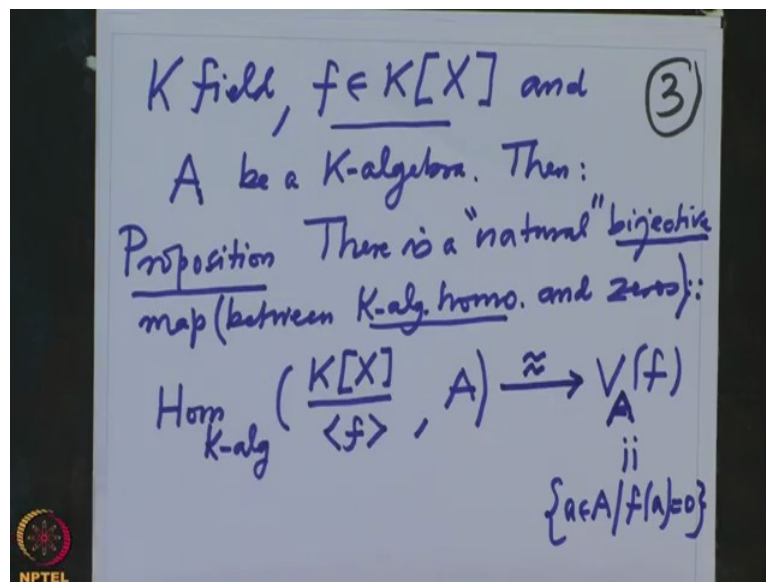 K field, f ∈ K[X] and
③
A be a K-algebra. Then:
Proposition There is a "natural" bijective
map (between K-alg. homo. and zeros)::
Hom_{K-alg} ( K[X] / <f> , A ) →^{≈} V_A(f)
ıı
{a∈A / f(a)=0}
NPTEL